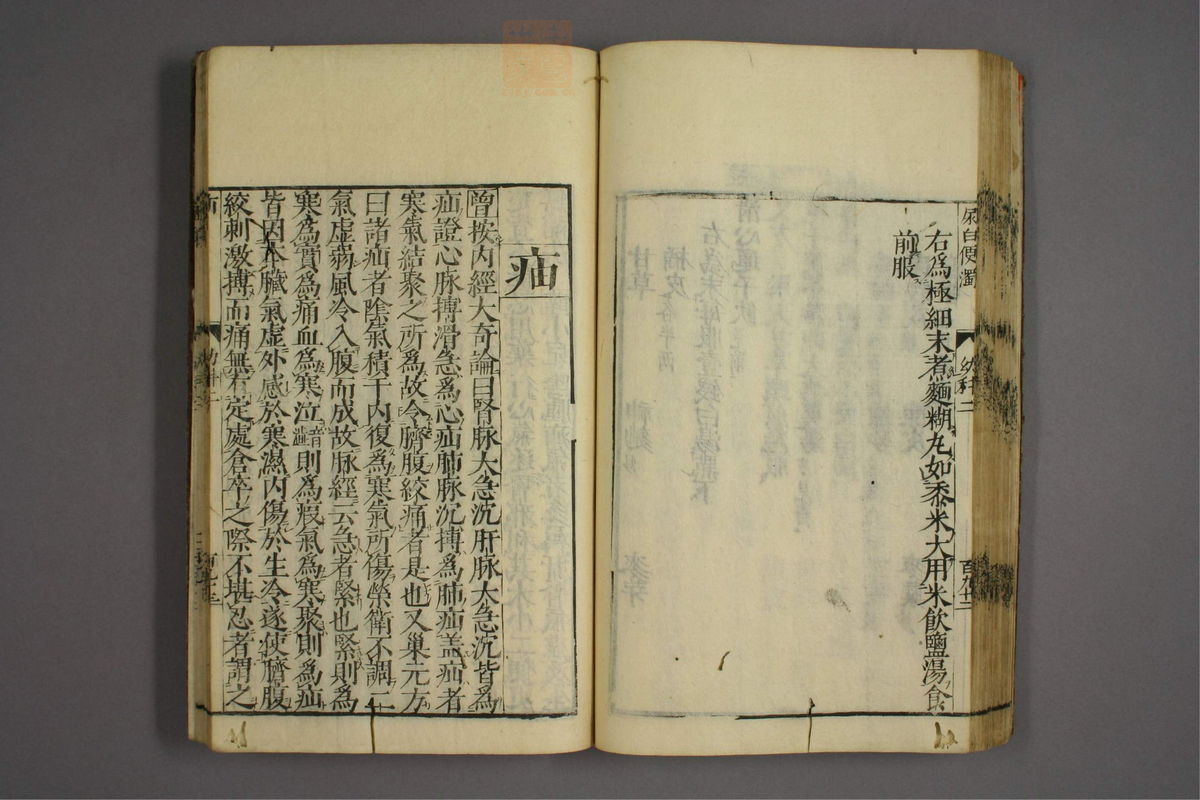 尿白便濁
幼科二
百九十二
右為極細末煮麵糊丸如黍米大用米飲鹽湯食
前服
疝
曾按內經大奇論曰腎脉大急沉肝脉大急沉皆為
疝證心脉搏滑急為心疝肺脉沉搏為肺疝盖疝者
寒氣結聚之所為故令臍腹絞痛者是也又巢元方
曰諸疝者陰氣積于内復為寒氣所傷榮衛不調二
氣虚弱風冷入腹而成故脉經云急者緊也緊則為
寒為實為痛血為寒泣音澁則為瘕氣為寒聚則為疝
皆因本臟氣虚外感於寒濕内傷於生冷遂使臍腹
絞刺激搏而痛無有定處倉卒之際不堪忍者謂之